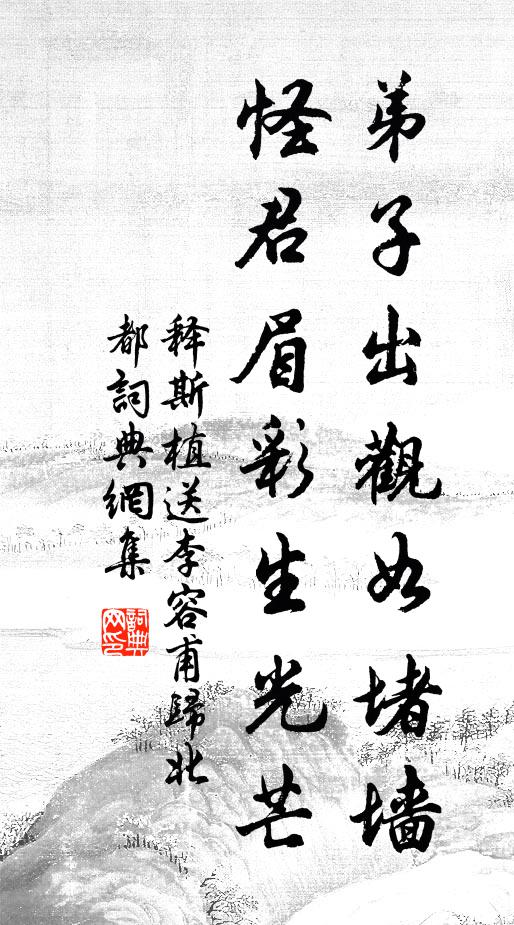 弟子出觀如堵墻
怪君眉彩生光芒
释斯植送李容甫歸北
都詞典網集
詞典网印